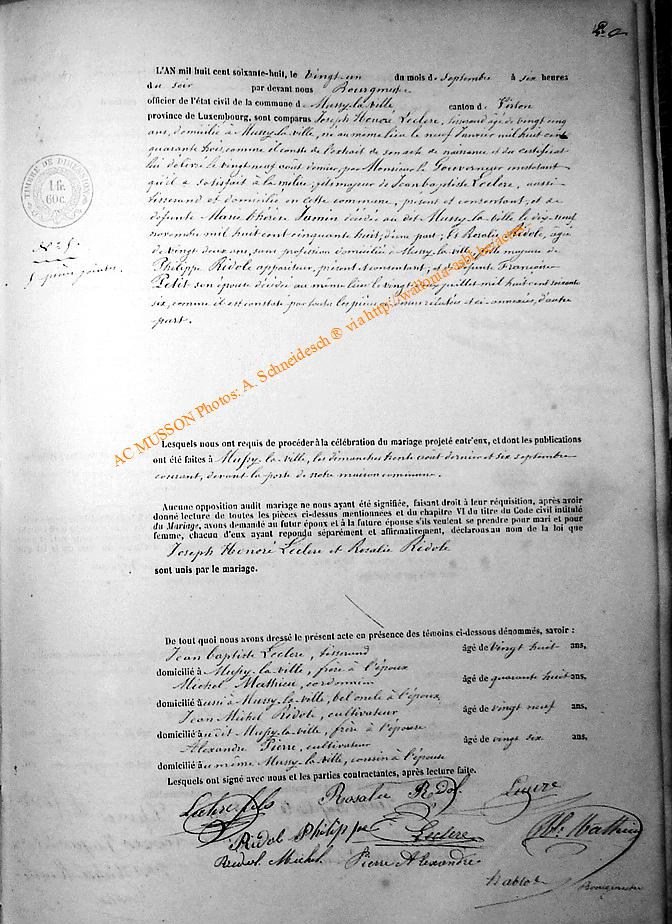 L'AN mil huit cent soixante-huit, le vingt-un du mois de septembre à six heures
du soir par devant nous Bourgmestre
officier de l'état civil de la commune de Mussy-la-ville canton de Virton
province de Luxembourg, sont comparus Joseph Honoré Leclere, tisserand âgé de vingt cinq
ans, domicilié à Mussy-la-ville, né au même lieu le neuf Janvier mil huit cent
quarante trois, comme il conste de l'extrait de son acte de naissance et du certificat
lui délivré le vingt neuf août dernier par Monsieur le Gouverneur constatant
qu'il a satisfait à la milice; fils majeur de Jean baptiste Leclere, aussi
tisserand et domicilié en cette commune, présent et consentant, et de
défunte Marie Thérèse Jamin décédée au dit Mussy-la-ville le dix-neuf
novembre mil huit cent cinquante huit, d'une part; Et Rosalie Ridole, âgée
de vingt deux ans, sans profession domiciliée à Mussy-la-ville, fille majeure de
Philippe Ridole appariteur, présent et consentant; et de défunte Françoise
Petit son épouse décédée au même lieu le vingt juillet mil huit cent soixante
six, comme il est constaté par toutes les pièces ci-dessus relatées et ci-annexées, d'autre
part.
TIMBRE DE DIMENSION
1 fr.
60c.
N° 5.
pièces jointes.
Lesquels nous ont requis de procéder à la célébration du mariage projeté entr'eux, et dont les publications
ont été faites à Mussy-la-ville, les dimanches trente août dernier et six septembre
courant, devant la porte de notre maison commune.
Aucune opposition audit mariage ne nous ayant été signifiée, faisant droit à leur réquisition, après avoir
donné lecture de toutes les pièces ci-dessus mentionnées et du chapitre VI du titre du Code civil intitulé
du Mariage, avons demandé au futur époux et à la future épouse s'ils veulent se prendre pour mari et pour
femme, chacun d'eux ayant repondu séparément et affirmativement, déclarons au nom de la loi que
Joseph Honoré Leclere et Rosalie Ridole
sont unis par le mariage.
De tout quoi nous avons dressé le présent acte en présence des témoins ci-dessous dénommés, savoir :
Jean baptiste Leclere, tisserand âgé de vingt huit ans,
domicilié à Mussy-la-ville, frère à l'époux
Michel Mathieu, cordonnier âgé de quarante huit ans,
domicilié aussi à Mussy-la-ville, bel oncle à l'époux
Jean Michel Ridole, cultivateur âgé de vingt neuf ans,
domicilié au dit Mussy-la-ville, frère à l'épouse
Alexandre Pierre, cultivateur âgé de vingt six ans,
domicilié au même Mussy-la-ville, cousin à l'épouse
Lesquels ont signé avec nous et les parties contractantes, après lecture faite.
Leclere fils Rosalie Ridol Leclere
Ridol Philippe Leclere M. Mathieu
Ridol Michel Pierre Alexandre
Bourgmestre
AC MUSSON Photos: A. Schneidesch ® via http://wallonia-asbl.be/actes/